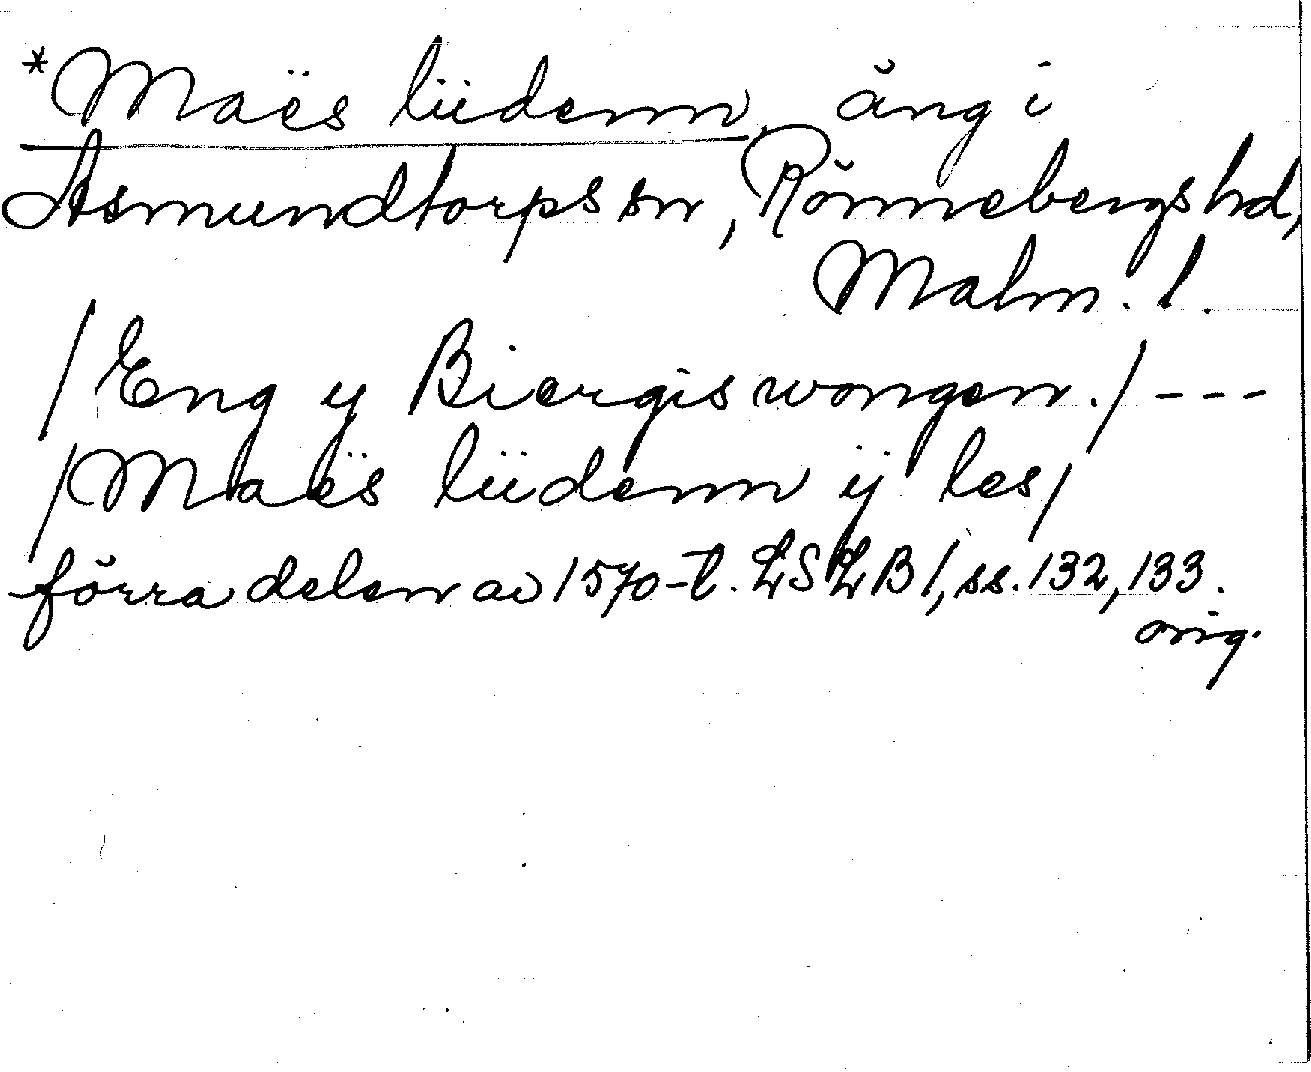 *Maës liidenn, äng i
Asmundtorps sn, Rönnebergs hd,
Malm. l.
/Eng y Biergis wongen./ ---
/Maës liidenn ij les/
förra delen av 1570-t. LSLB 1, ss. 132, 133.
orig.